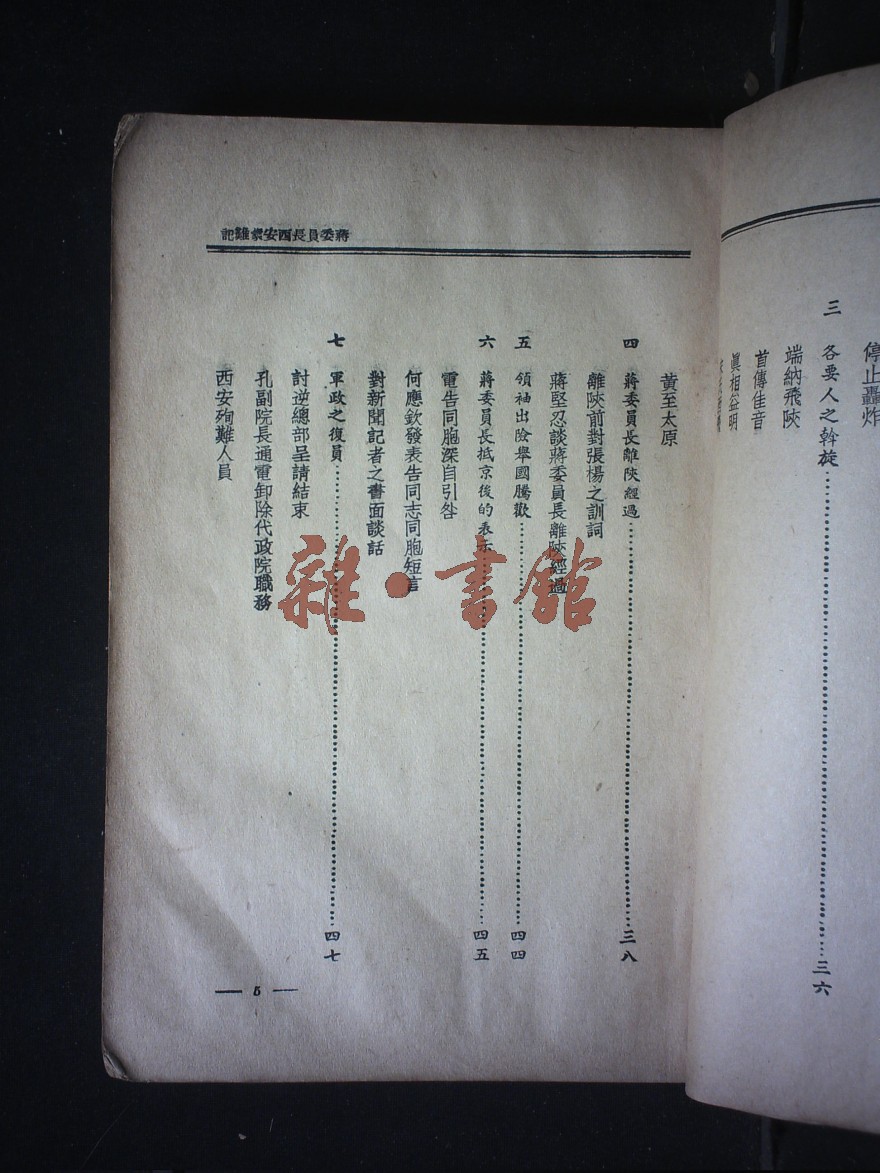 停止轟炸
三 各要人之斡旋……三六
端納飛陝
首傳佳音
眞相益明
蔣委員長西安蒙難記
黃至太原
四 蔣委員長離陝經過……三八
離陝前對張楊之訓詞
蔣堅忍談蔣委員長離陝經過
五 領袖出險舉國騰歡……四四
六 蔣委員長抵京後的表示……四五
電告同胞深自引咎
何應欽發表告同志同胞短言
對新聞記者之書面談話
七 軍政之復員……四七
討逆總部呈請結束
孔副院長通電卸除代政院職務
西安殉難人員
— 5 —
雜·書館